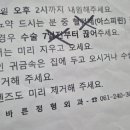 일 오후 2시까지 내원해주세요
약 드시는 분 중 혈 (아스피린)
경우 수술 7일전부터 끊어주세
는 미리 지우고 오세요.
인 귀금속은 집에 두고 오시거나 수
제거해 주세요.
렌즈도 미리 제거해 주세요.
바른정형외과 ☎ 061-240-3